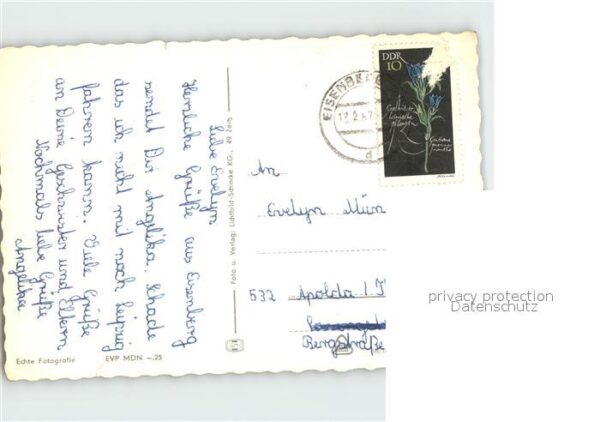 Liebe Evelyn
Herzliche Grüße aus Eisenberg
sendet Dir Angelika. Schade
das ich nicht mit nach Leipzig
fahren kann. Viele Grüße
an Deine Geschwister und Eltern
Nochmals liebe Grüße
Angelika
Echte Fotografie
EVP MDN –.25
Foto u. Verlag: Lichtbild-Schincke KG., 49 Zeitz
EISENBERG
DDR
10
An
Evelyn Mün
532 Apolda / T
Bergstraße
privacy protection
Datenschutz